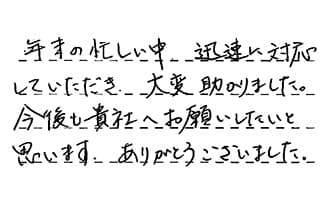 年末の忙しい中 迅速に対応
していただき、大変助かりました。
今後も貴社へお願いしたいと
思います。ありがとうございました。